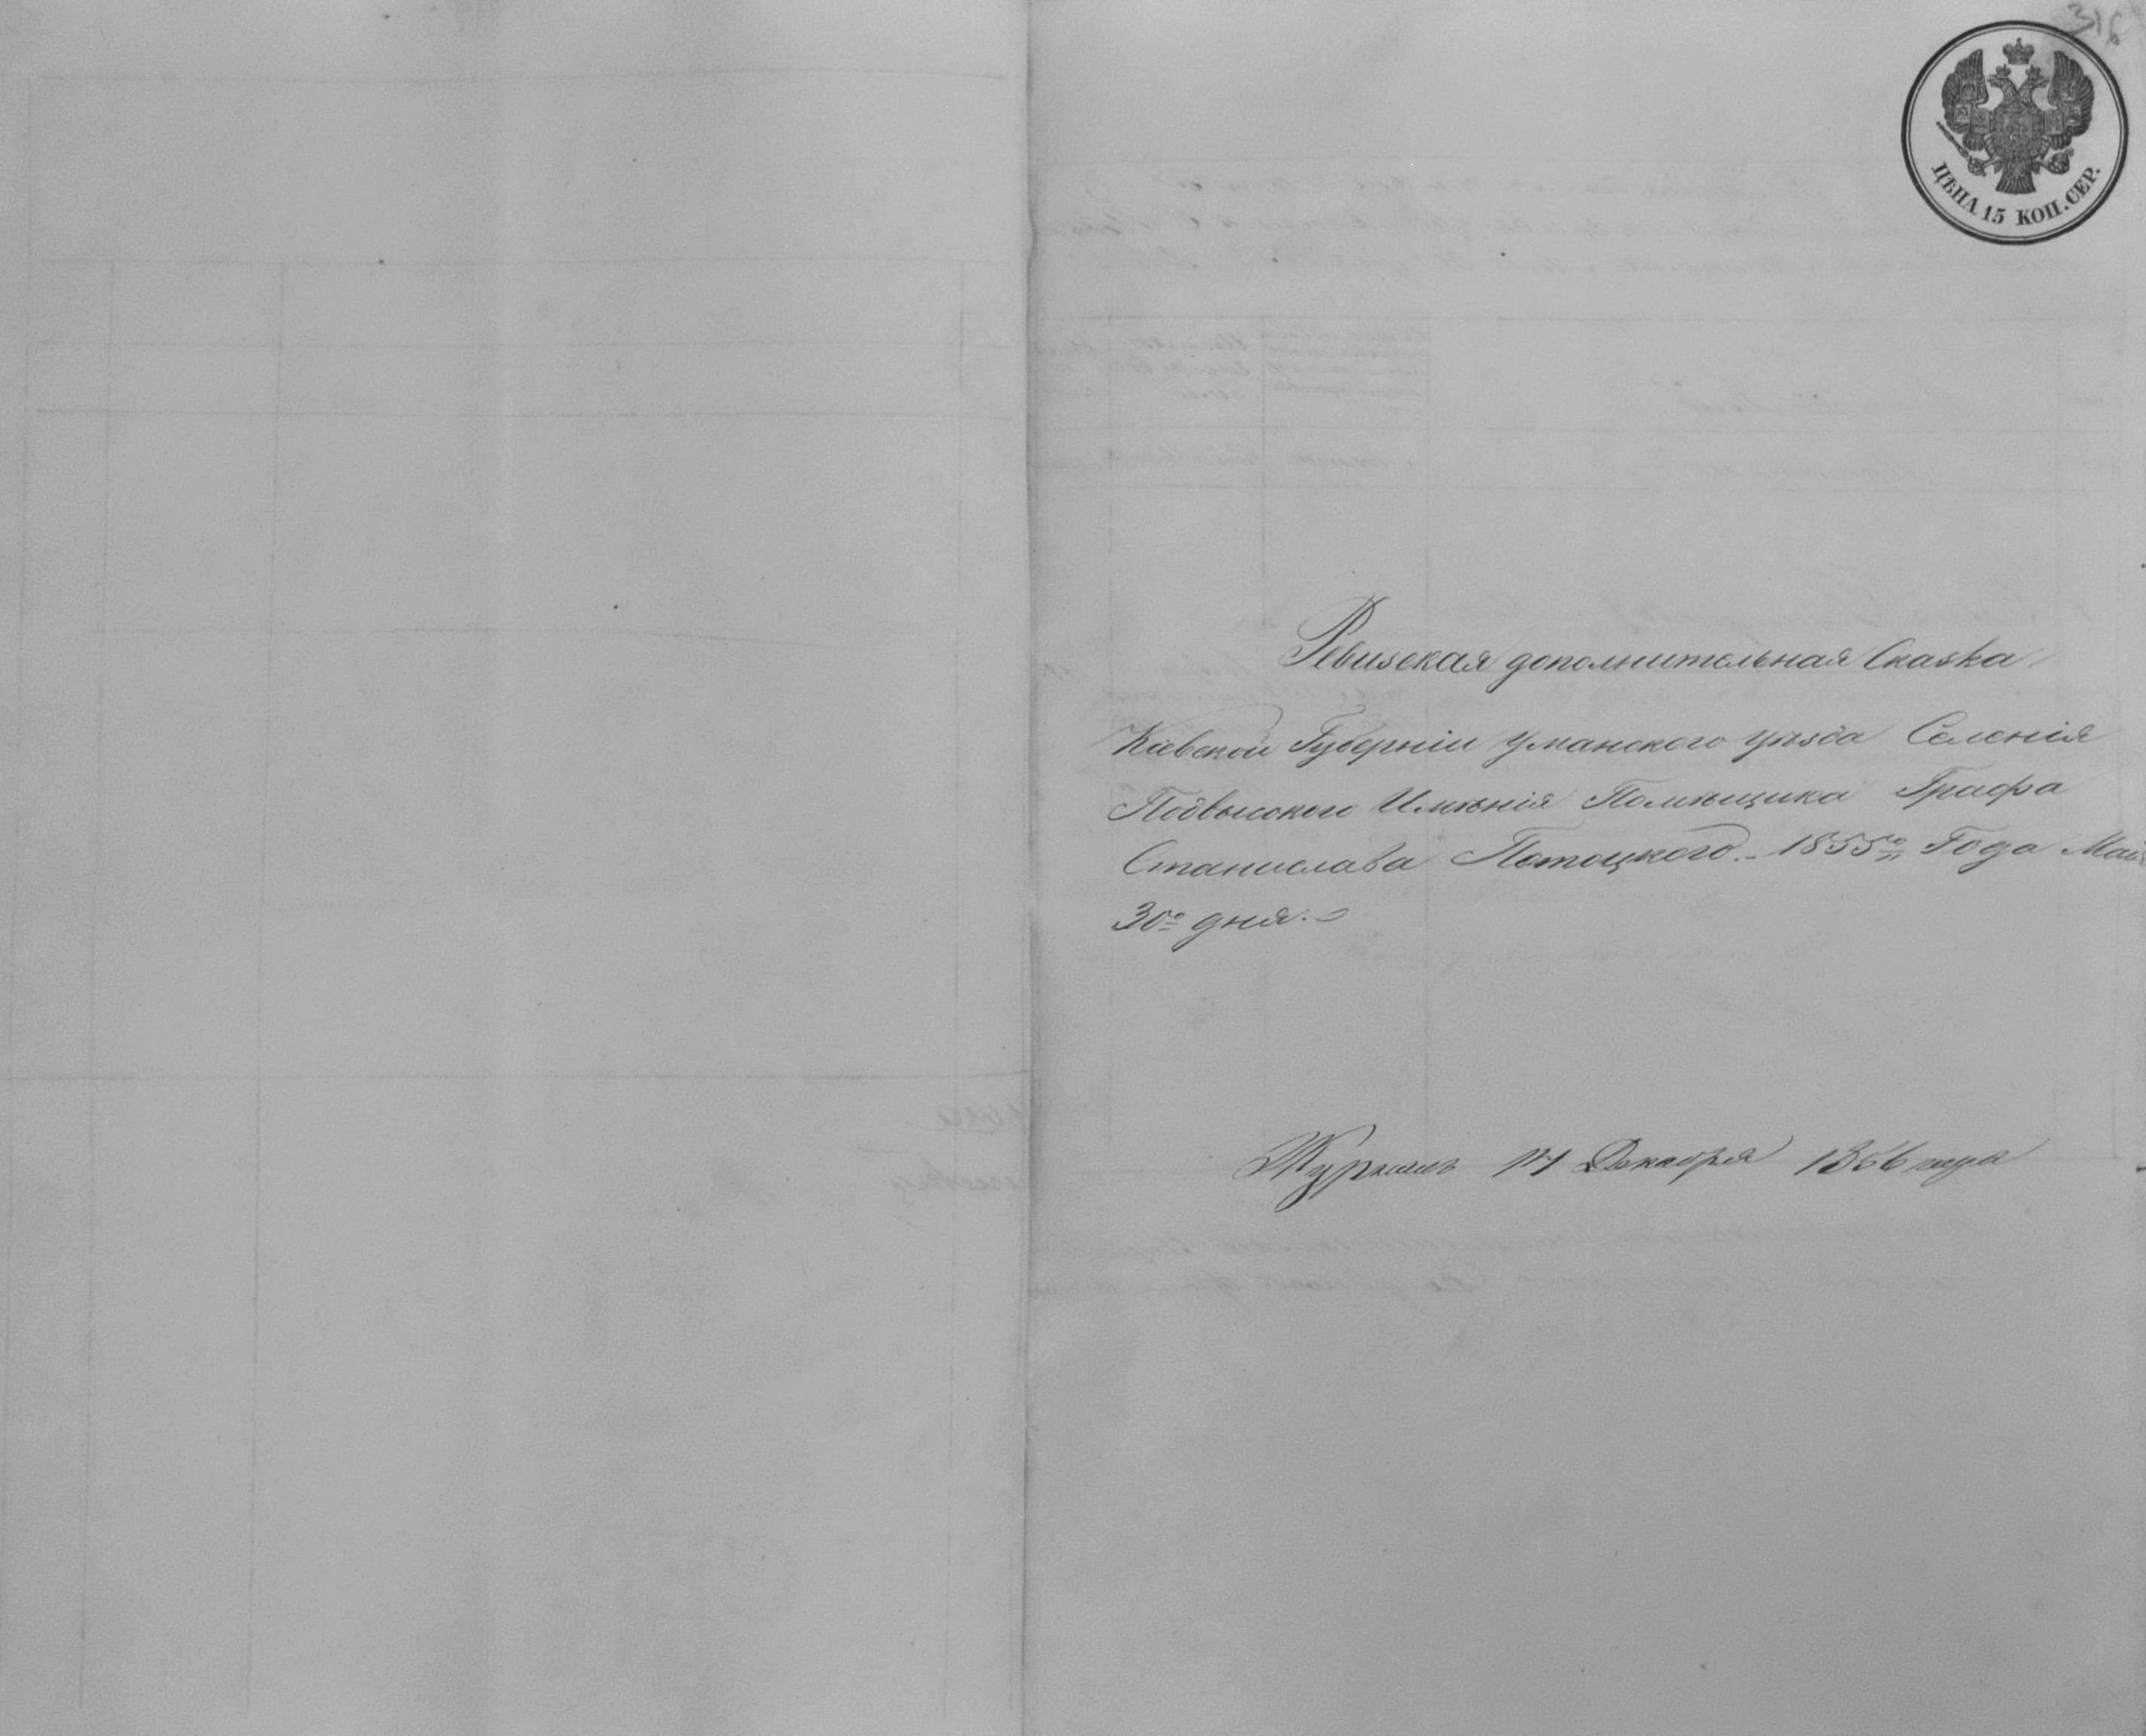 316
ЦѢНА 15 КОП. СЕР.
Ревизская дополнительная Сказка
Кіевской Губерніи Уманского уѣзда Селенія
Подвысокого Имѣнія Помѣщика Графа
Станислава Потоцкого. 1855го Года Мая
30го дня.
Журналъ Декабря 1856 года